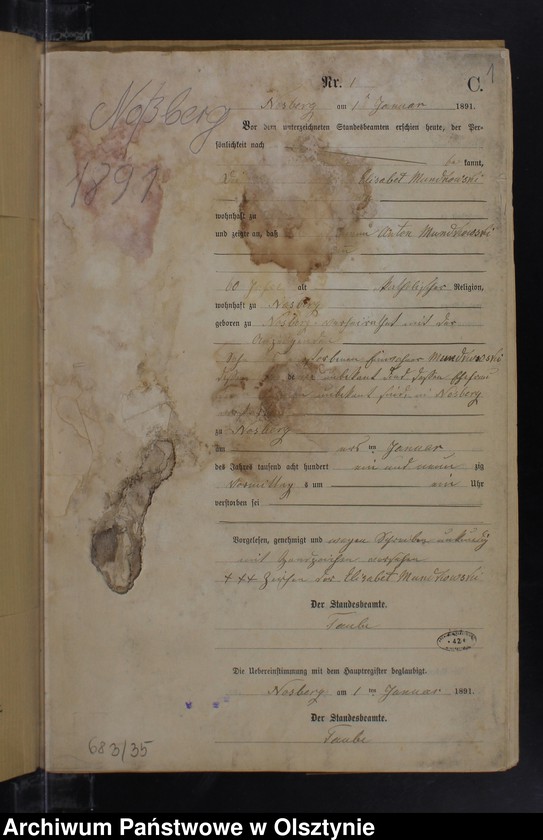 1
Noßberg
1891
Nr. 1
C.
Nosberg am 1 Januar 1891.
Vor dem unterzeichneten Standesbeamten erschien heute, der Per-
sönlichkeit nach
kannt,
Elisabet Mundkowski
wohnhaft zu
und zeigte an, daß Anton Mundkowski
60 alt katholischer Religion,
wohnhaft zu Nosberg
geboren zu Nosberg verheirathet mit der
Anzeigenden
Mundkowski
unbekant und dessen
unbekant Nosberg
zu Nosberg
am ten Januar
des Jahrs tausend acht hundert ein und neun zig
Vormittag s um ein Uhr
verstorben sei
Vorgelesen, genehmigt und wegen Schreibens unkundig
mit Handzeichen versehen
+++ Zeichen der Elisabet Mundkowski
Der Standesbeamte.
Taube
42
Die Uebereinstimmung mit dem Hauptregister beglaubigt.
Nosberg am 1 ten Januar 1891.
Der Standesbeamte.
Taube
683/35
Archiwum Państwowe w Olsztynie